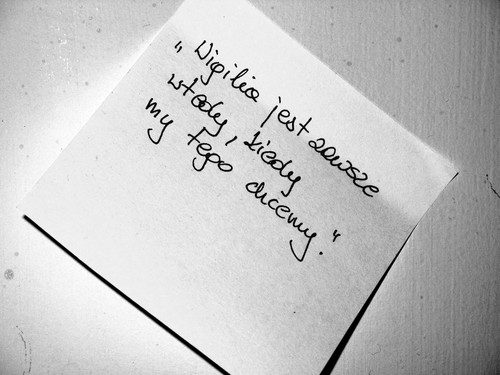 „Wigilia jest zawsze
wtedy, kiedy
my tego chcemy."